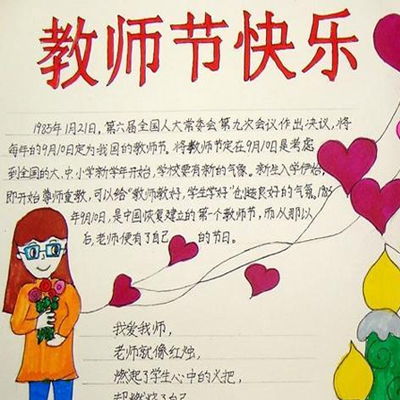 教师节快乐
1985年1月21日,第六届全国人大常委会第九次会议作出决议,将
每年的9月10日定为我国的教师节。将教师节定在9月10日是考虑
到全国的大、中、小学新学年开始,学校要有新的气象。新生入学伊始,
即开始尊师重教,可以给"教师教好,学生学好"创造良好的气氛。
年9月10日,是中国恢复建立的第一个教师节,而从那以
后,老师便有了自己的节日。
我爱我师,
老师就像红烛,
燃起了学生心中的火把,
却燃烧了自己